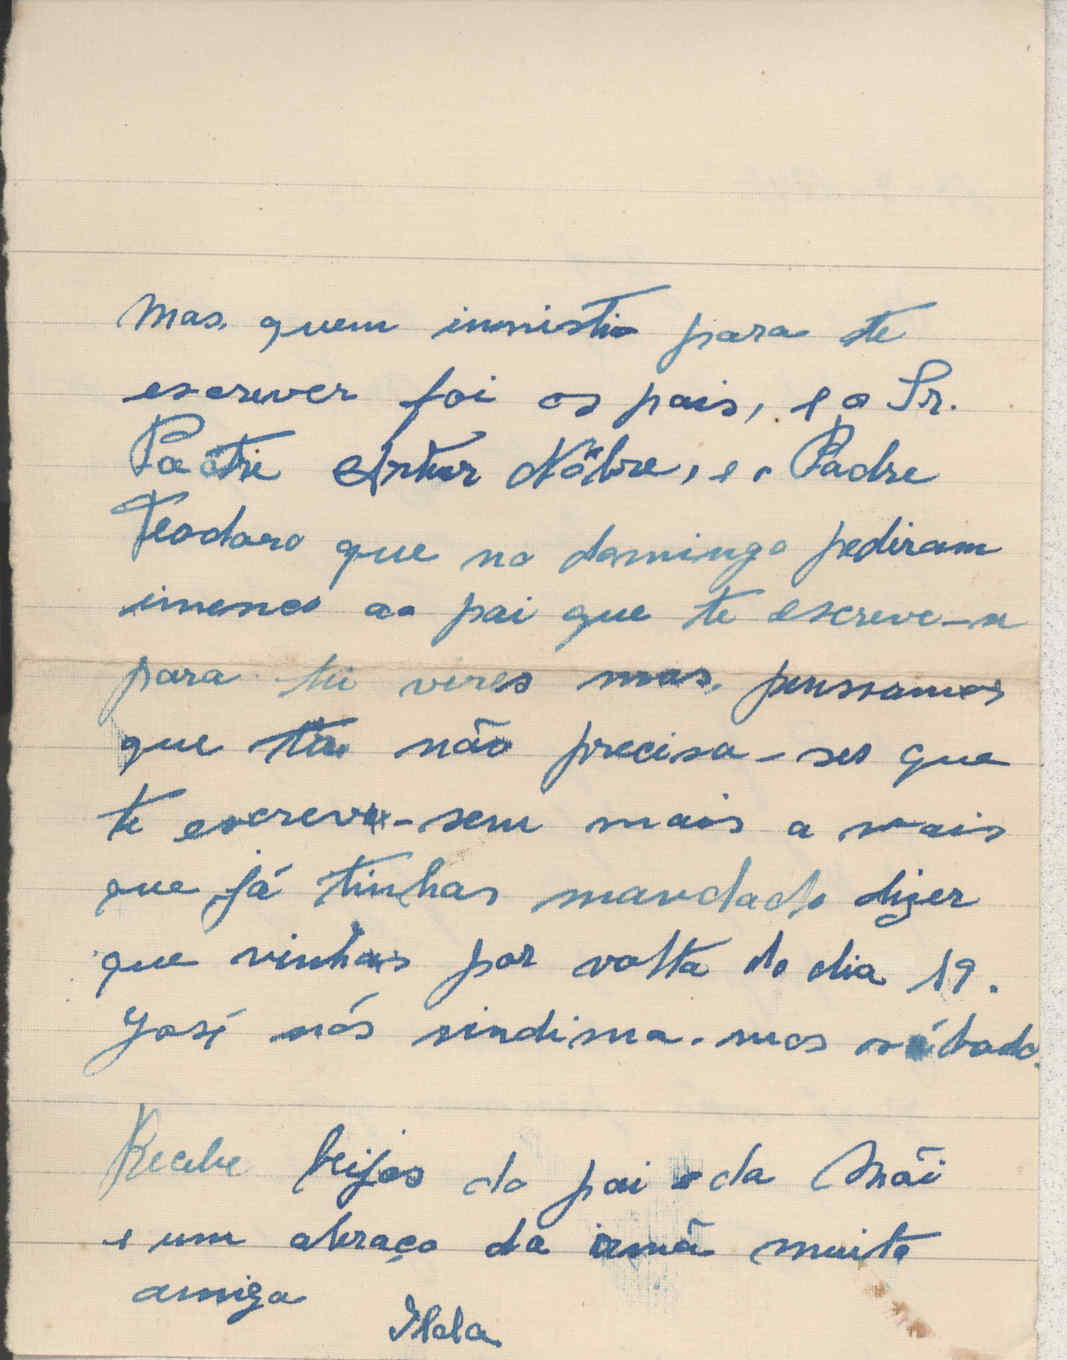 Mas, quem insisstio para te
escrever foi os pais, e o Sr.
Padre Artur Nóbre, e o Padre
Teodoro que no domingo pediram
imenso ao pai que te escreve-se
para tu vires mas, penssamos
que tu não precisa-ses que
te escreve-sem mais a mais
que já tinhas mandado dizer
que vinhas por volta do dia 19.
José nós vindima-mos sábado.
Recebe beijos do pai e da Mãi
e um abraço da irmã muito
amiga